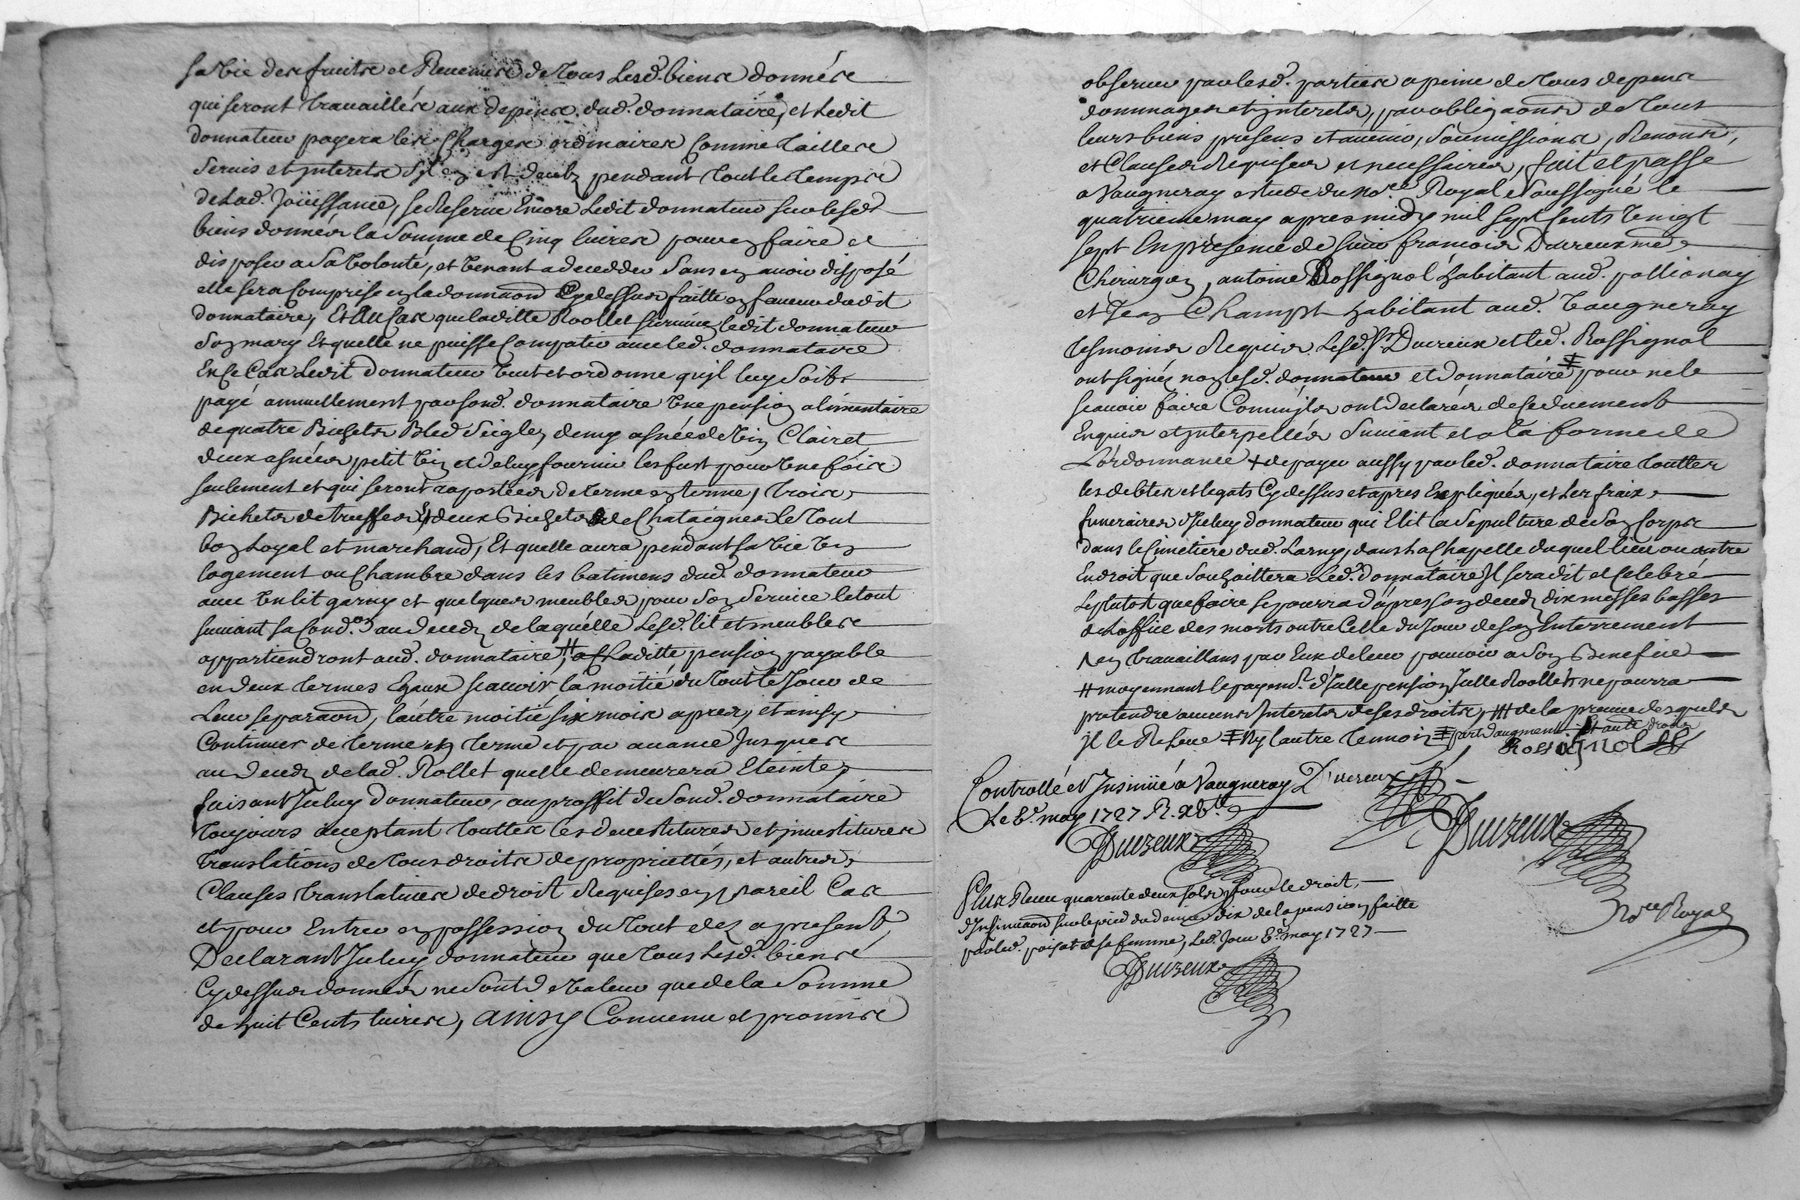 sa vie des fruits et Revenus de tous lesd. biens donnés
qui seront travaillés aux depens dud. donnataire, et ledit
donnateur payera les Charges ordinaires Comme tailles
Servis et interets Sy en est deub pendant tout le temps
de lad. Jouissance, se Reserve Encore ledit donnateur sur lesd.
biens donnés la Somme de Cinq livres pour en faire et
disposer a sa volonté, et venant a decedder Sans en avoir disposé
elle sera Comprise en la donnaon Cy dessus faitte en faveur dudit
donnataire, Et Au Cas que laditte Roollet survive ledit donnateur
son mary Et quelle ne puisse Compatir avec led. donnataire
En Ce Cas Ledit donnateur veut et ordonne qu'jl luy Soit
payé annuellement par sond. donnataire vne pension alimentaire
de quatre Bichets Bled Seigle, demy asnée de vin Clairet
deux asnées petit vin et de luy fournir les fust pour vne fois
seulement et qui seront raportées de terme en terme, trois
Bichets de truffes, deux Bichets de Chataignes le tout
bon Loyal et marchand, Et quelle aura pendant sa vie vn
logement ou Chambre dans les batimens dud. donnateur
avec vn lit garny et quelques meubles pour son Service le tout
suivant sa Cond.on au deceds de laquelle Lesd. lit et meubles
appartiendront aud. donnataire, # laditte pension payable
en deux termes Egaux scavoir la moitié du tout le Jour de
Leur separaon, l'autre moitié six mois apres, et ainsy
Continuer de terme en terme et par avance Jusques
au deceds de lad. Rollet quelle demeurera Eteinte,
faisant Jceluy donnateur, au proffit du sond. donnataire
toujours acceptant touttes les devestitures et jnvestitures
translations de tous droits de propriettés, et autres
Clauses translatives de droit Requises en pareil Cas
et pour Entrer en possession du tout dez a present,
Declarant Jceluy donnateur que tous Lesd. biens
Cy dessus donnés ne sont de valeur que de la Somme
de huit Cents livres, ainsy Convenu et promis
observer par lesd. parties a peine de tous depens
dommages et jnterets, par obligaons de tout
leurs biens presens et avenir, Soumissions, Renons,
et Clauses Requises et necessaires, fait et passé
a Vaugneray etude du nore Royal Soussigné le
quatrieme may apres midy mil Sept Cents vingt
sept En presence de sieur francois Ducreux me
Chirurgien, antoine Rossignol habitant aud. pollionay
et Jean Champt habitant aud. Vaugneray
tesmoins Requis Lesd. Sr Ducreux et led. Rossignol
ont signés non lesd. donnateur et donnataire pour ne le
scavoir faire Comm'jls ont declarés de Ce duement
Enquis et jnterpellés Suivant et a la forme de
L'ordonnance + de payer aussy par led. donnataire touttes
les debtes et legats Cy dessus et apres Expliqués, et les frais
funeraires d'Jceluy donnateur qui Elit la Sepulture de Son Corps
dans le Cimetiere dud. Larny, dans la Chapelle duquel lieu ou autre
Endroit que Souhaittera Led. donnataire Jl sera dit et Celebré
Le plutost que faire se pourra d'apres son deceds dix messes basses
de l'office des morts outre Celle du Jour de son Enterrement
en travaillans par Eux de leur pouvoir a son Benefice
# moyennant le payemt. d'Jcelle pension Jcelle Roollet ne pourra
pretendre aucuns Interets de ses droits, ## de la preuve desquels
jl le Releve ‡ Ny l'autre temoin part d'augment. Et autre droits
Rossignol
Controllé et Jnsinüé à Vaugneray Ducreux
Le 6e. may 1727 R.
Duizeux
Duizeux
Plus Receu quarante deux sols, pour le droit
d'Jnsinuaon sur le pied du denier dix de la pension faitte
par led. poizat a sa femme, Led. Jour 6e. may 1727
Nore Royal
Duizeux